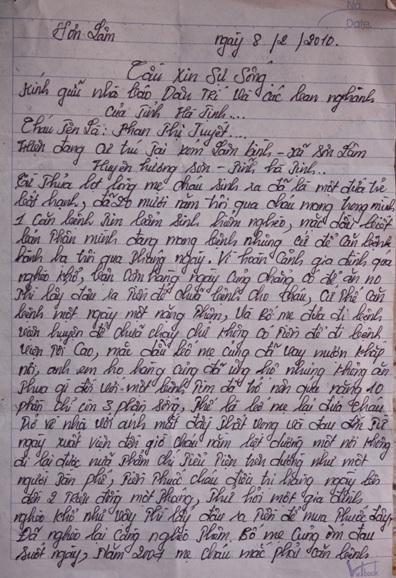 No:
Date.
Sơn Lâm ngày 8 / 2 / 2010.
Cầu Xin Sự Sống
Kính gửi nhà báo Dân Trí và các ban nghành
của Tỉnh Hà Tĩnh....
Cháu Tên Là: Phan Thị Tuyết....
Hiện đang cư trú Tại xóm Lâm Bình - xã Sơn Lâm
Huyện Hương Sơn - Tỉnh Hà Tĩnh..
Từ Thửa lọt lòng mẹ cháu sinh ra đã là một đứa trẻ
bất hạnh, đã 20 mười năm trời qua cháu mang trong mình
1 căn bệnh Tim bẩm sinh hiểm nghèo, mặc dầu biết
bản Thân mình đang mang bệnh nhưng cứ để căn bệnh
hành hạ trời qua từng ngày. Vì hoàn cảnh gia đình quá
nghèo khổ, bữa cơm hàng ngày cũng chẳng có để ăn no
Thì lấy đâu ra Tiền để chữa bệnh cho cháu, cứ thế căn
bệnh một ngày một nặng Thêm, và bố mẹ đưa đi bệnh
viện huyện để chữa chạy chứ không có Tiền để đi bệnh
viện Tối Cao, mặc dầu bố mẹ cũng đã vay mượn khắp
nơi, anh em họ hàng cũng đã ủng hộ nhưng không ăn
Thua gì đối với một bệnh Tim đã trở nên quá nặng 10
phần chỉ còn 3 phần sống, Thế là bố mẹ lại đưa cháu
Trở về nhà với ánh mắt đầy Thất vọng và đau đớn Từ
ngày xuất viện đến giờ cháu nằm liệt giường một nơi không
đi lại được nữa Thậm chí Tiểu Tiện trên giường như một
người Tàn phế, Tiền Thuốc cháu điều trị hàng ngày lên
đến 2 Triệu đồng một Tháng, Thử hỏi một gia đình
nghèo khổ như vậy Thì lấy đâu ra Tiền để mua Thuốc đây,
Đã nghèo lại càng nghèo Thêm. Bố mẹ cũng ốm đau
suốt ngày, Năm 2007 mẹ cháu mắc phải căn bệnh